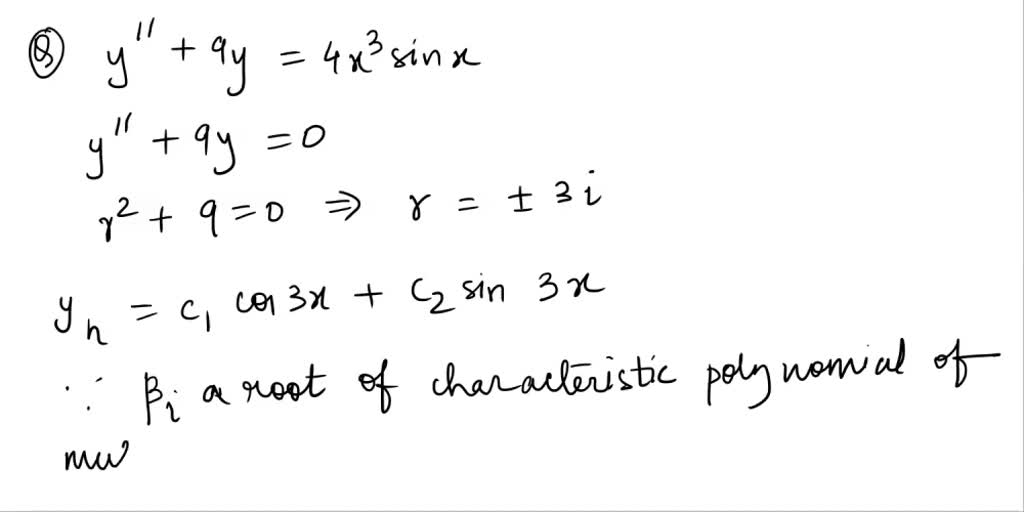 Q y'' + 9y = 4x³ sin x
y'' + 9y = 0
r² + 9 = 0 ⇒ r = ± 3i
y_h = c₁ cos 3x + c₂ sin 3x
∵ βi a root of characteristic polynomial of
mu